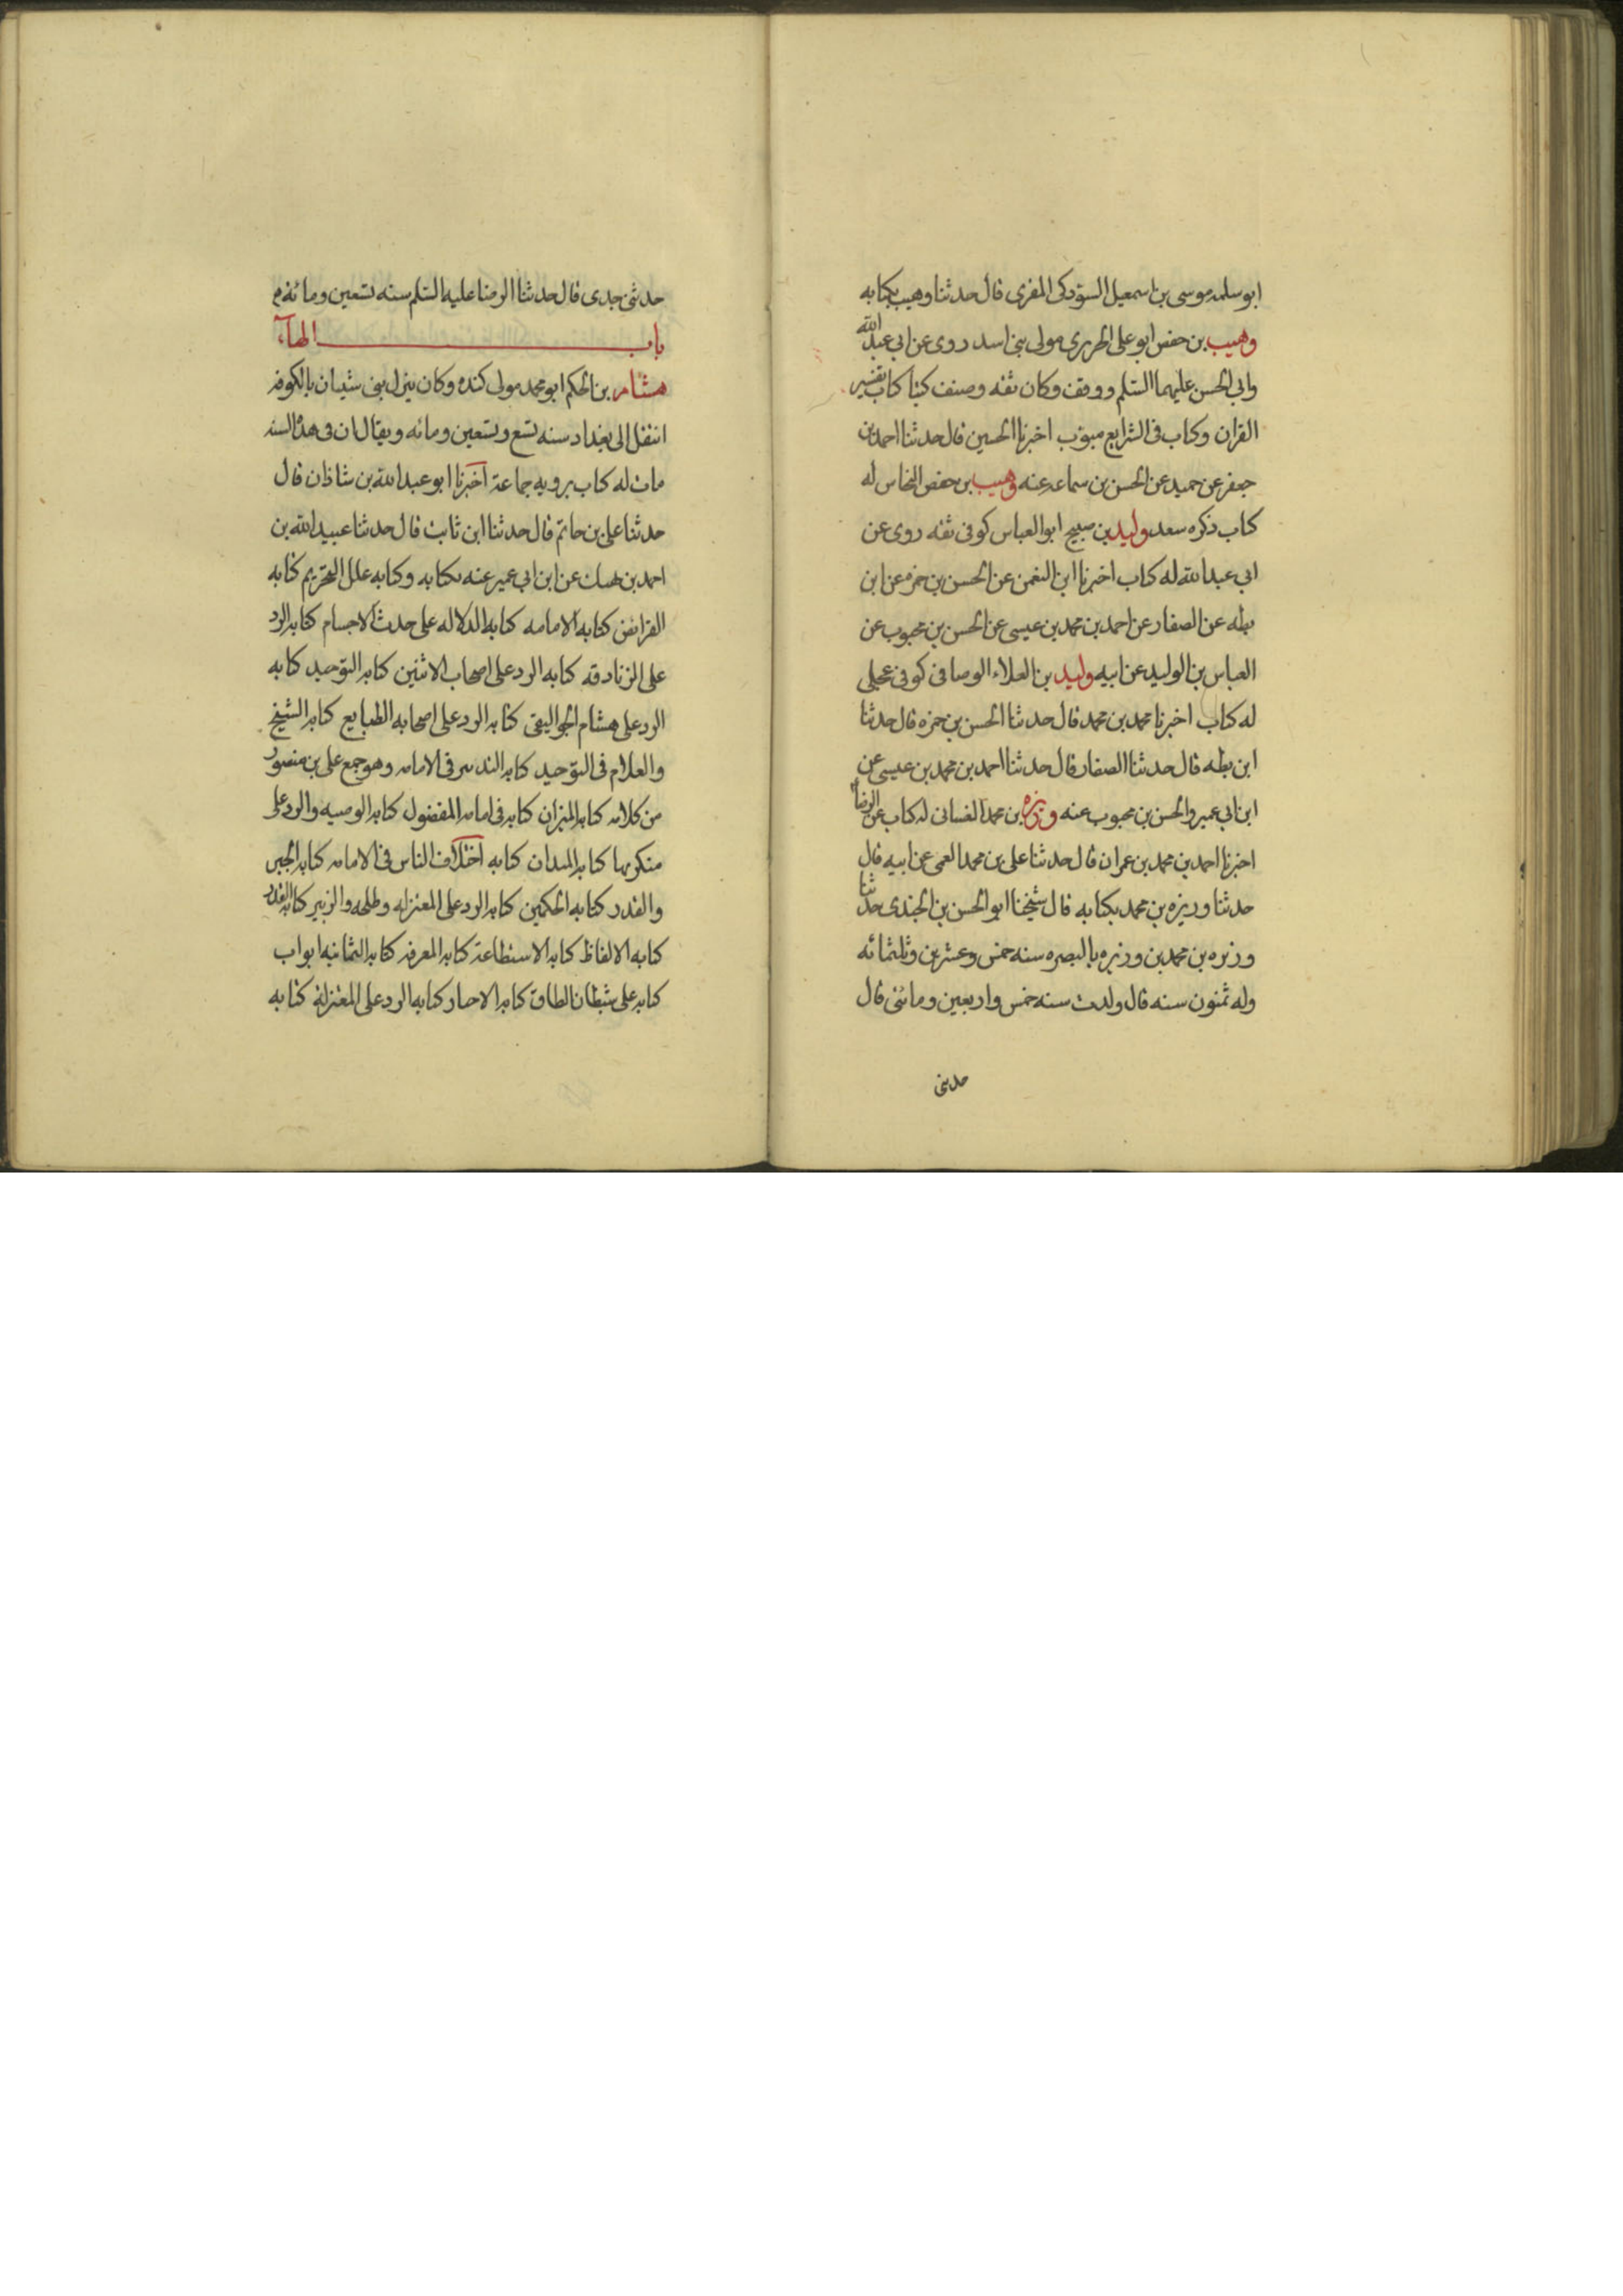 ابو سلمه موسى بن اسمعيل السوذكى المقرى قال حدثنا وهيب بكتابه
وهيب بن حفص ابو على الجريرى مولى بنى اسد روى عن ابى عبد الله
وابى الحسن عليهما السلم ووقف وكان ثقه وصنف كتبا كتاب تفسير
القران وكتاب فى الشرايع مبوب اخبرنا الحسين قال حدثنا احمد بن
جعفر عن حميد عن الحسن بن سماعه عنه وهيب بن حفص النخاس له
كتاب ذكره سعد وليد بن صبيح ابو العباس كوفى ثقه روى عن
ابى عبد الله له كتاب اخبرنا ابن النعمن عن الحسن بن حمزه عن ابن
بطه عن الصفار عن احمد بن محمد بن عيسى عن الحسن بن محبوب عن
العباس بن الوليد عن ابيه وليد بن العلاء الوصافى كوفى عجلى
له كتاب اخبرنا محمد بن محمد قال حدثنا الحسن بن حمزه قال حدثنا
ابن بطه قال حدثنا الصفار قال حدثنا احمد بن محمد بن عيسى عن
ابن ابى عمير والحسن بن محبوب عنه وريزه بن محمد الغسانى له كتاب عن الرضا
اخبرنا احمد بن محمد بن عمران قال حدثنا على بن محمد العمى عن ابيه قال
حدثنا وريزه بن محمد بكتابه قال شيخنا ابو الحسن بن الجندى حدثنا
وريزه بن محمد بن وريزه بالبصره سنه خمس وعشرين وثلثمائه
وله ثمنون سنه قال ولدت سنه خمس واربعين ومائتى قال
حدثنى
حدثنى جدى قال حدثنا الرضا عليه السلم سنه تسعين ومائه
باب الهاء
هشام بن الحكم ابو محمد مولى كنده وكان ينزل بنى شيبان بالكوفه
انتقل الى بغداد سنه تسع وتسعين ومائه ويقال ان فى هذه السنه
مات له كتاب يرويه جماعة اخبرنا ابو عبد الله بن شاذان قال
حدثنا على بن حاتم قال حدثنا ابن ثابت قال حدثنا عبيد الله بن
احمد بن نهيك عن ابن ابى عمير عنه بكتابه وكتابه علل التحريم كتابه
الفرائض كتابه الامامه كتابه الدلاله على حدث الاجسام كتابه الرد
على الزنادقه كتابه الرد على اصحاب الاثنين كتابه التوحيد كتابه
الرد على هشام الجواليقى كتابه الرد على اصحاب الطبايع كتابه الشيخ
والغلام فى التوحيد كتابه التدبير فى الامامه وهو جمع على بن منصور
من كلامه كتابه الميزان كتابه فى امامه المفضول كتابه الوصيه والرد على
منكريها كتابه الميدان كتابه اختلاف الناس فى الامامه كتابه الجبر
والقدر كتابه الحكمين كتابه الرد على المعتزله وطلحه والزبير كتابه القدر
كتابه الالفاظ كتابه الاستطاعة كتابه المعرفه كتابه الثمانيه ابواب
كتابه على شيطان الطاق كتابه الاخبار كتابه الرد على المعتزلة كتابه